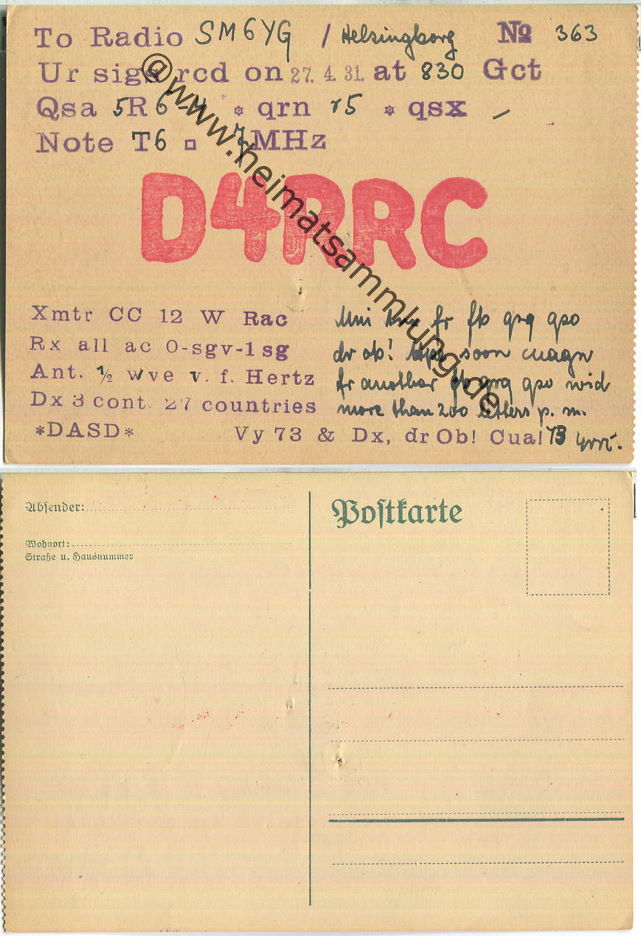 To Radio SM6YG / Helsingborg № 363
Ur sigs rcd on 27.4.31. at 830 Gct
Qsa 5 R 6- * qrn r5 * qsx –
Note T6 ¤ 7 MHz
D4RRC
Xmtr CC 12 W Rac
Rx all ac 0-sgv-1sg
Ant. ½ wve v. f. Hertz
Dx 3 cont. 27 countries
*DASD*
Vy 73 & Dx, dr Ob! Cua! 73
fr fb qrq qso
dr ob! soon cuagn
fr another fb qrq qso wid
more than 200 letters p. m.
@www.heimatsammlung.de
Absender:
Wohnort:
Straße u. Hausnummer
Postkarte